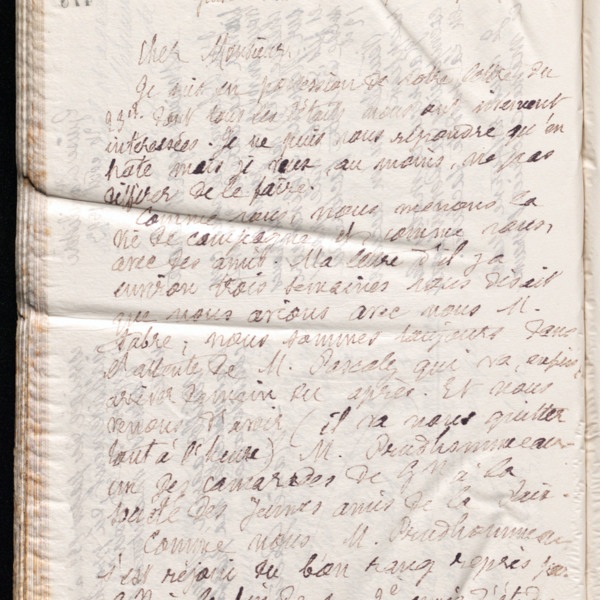 Cher Monsieur,
Je suis en possession de votre lettre du
dont tous les détails nous ont vivement
intéressées. Je ne puis vous répondre qu'en
hâte mais je veux, au moins, ne pas
différer de le faire.
Comme vous nous menons la
vie de campagne et comme vous,
avec des amis. Ma lettre d'il y a
environ trois semaines vous disait
que nous avions avec nous M.
; nous sommes toujours dans
l'attente de M. qui va, enfin,
arriver demain ou après. Et nous
venons d'avoir (il va nous quitter
tout à l'heure) M. Prudhommeaux
un des camarades de à la
société des Jeunes amis de la Paix.
Comme vous M. Prudhommeaux
s'est réjoui du bon rang repris par